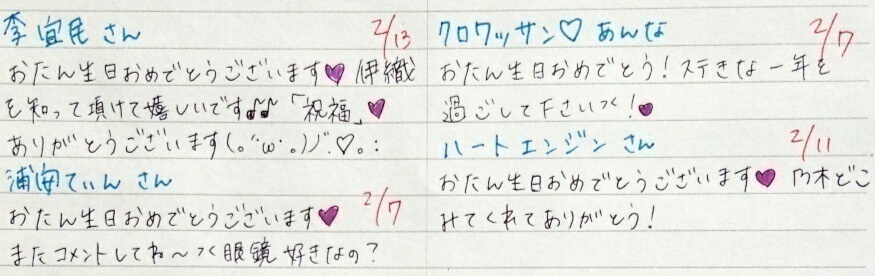 李宜民 さん 2/13
おたん生日おめでとうございます♥ 伊織
を知って頂けて嬉しいです♫♫ 「祝福」♥
ありがとうございます(。・ω・。)ノ゙.♡。:
浦安てぃん さん
おたん生日おめでとうございます♥ 2/7
またコメントしてね〜つく眼鏡好きなの?
クロワッサン♡ あんな 2/7
おたん生日おめでとう! ステきな一年を
過ごして下さいつく!♥
ハートエンジン さん 2/11
おたん生日おめでとうございます♥ 乃木どこ
みてくれてありがとう!